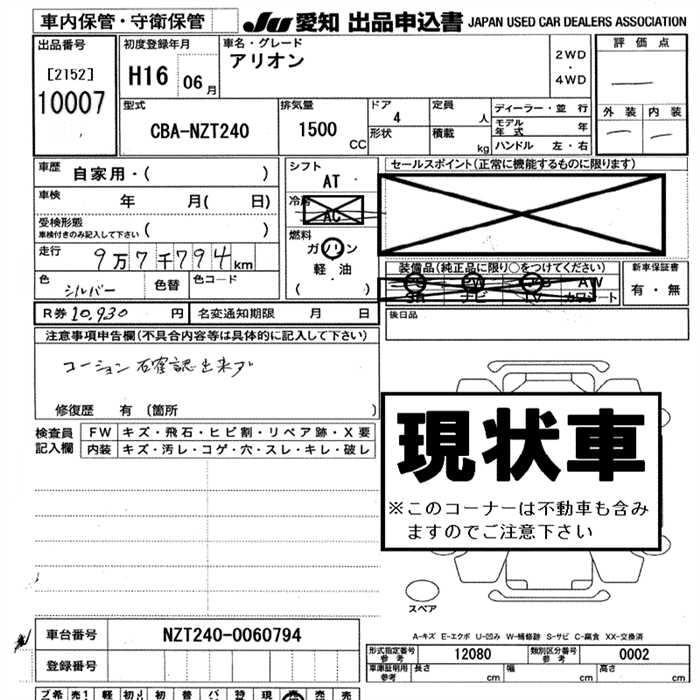 車内保管・守衛保管 JU 愛知 出品申込書 JAPAN USED CAR DEALERS ASSOCIATION
出品番号
[2152]
10007
初度登録年月
H16 06月
車名・グレード
アリオン
2WD
・
4WD
評価点
—
外装 内装
— —
型式
CBA-NZT240
排気量
1500
CC
ドア
4
形状
定員
人
積載
kg
ディーラー・並行
モデル年式 年
ハンドル 左・右
車歴 自家用・( )
車検 年 月( 日)
受検形態
車検付きのみ記入して下さい ( )
走行 9万7千794km
色 シルバー 色替 色コード
R券 10,930 円 名変通知期限 月 日
シフト
AT
冷房
AC
燃料
ガソリン
軽・油
( )
セールスポイント(正常に機能するものに限ります)
装備品(純正品に限り○をつけてください)
PS PW AB AW
SR ナビ TV カワシート
新車保証書
有・無
後日品
注意事項申告欄(不具合内容等は具体的に記入して下さい)
コーション 石確認出来ズ
修復歴 有 〔箇所 〕
検査員記入欄
FW キズ・飛石・ヒビ割・リペア跡・X要
内装 キズ・汚レ・コゲ・穴・スレ・キレ・破レ
現状車
※このコーナーは不動車も含み
ますのでご注意下さい
スペア
A-キズ E-エクボ U-凹み W-補修跡 S-サビ C-腐食 XX-交換済
車台番号 NZT240-0060794
登録番号
形式指定番号
参考
12080
類別区分番号
参考
0002
車庫証明用
参考
長さ cm 幅 cm 高さ cm